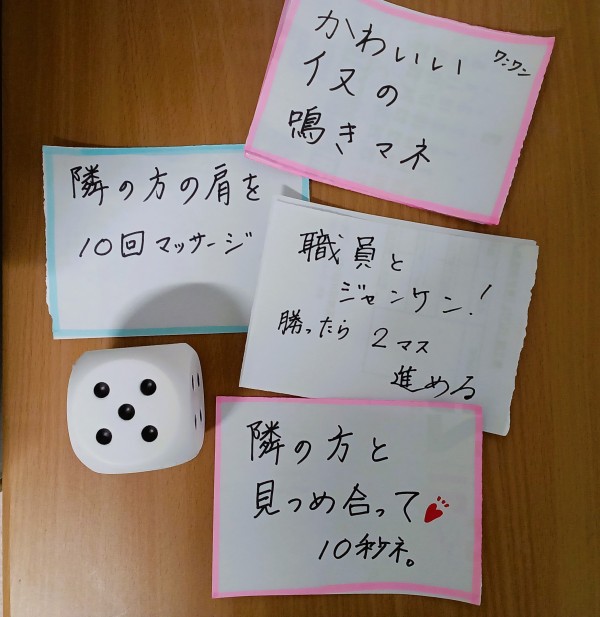 かわいい
ワンワン
イヌの
鳴きマネ
隣の方の肩を
10回マッサージ
職員と
ジャンケン!
勝ったら2マス
進める
隣の方と
見つめ合って
10秒ネ。